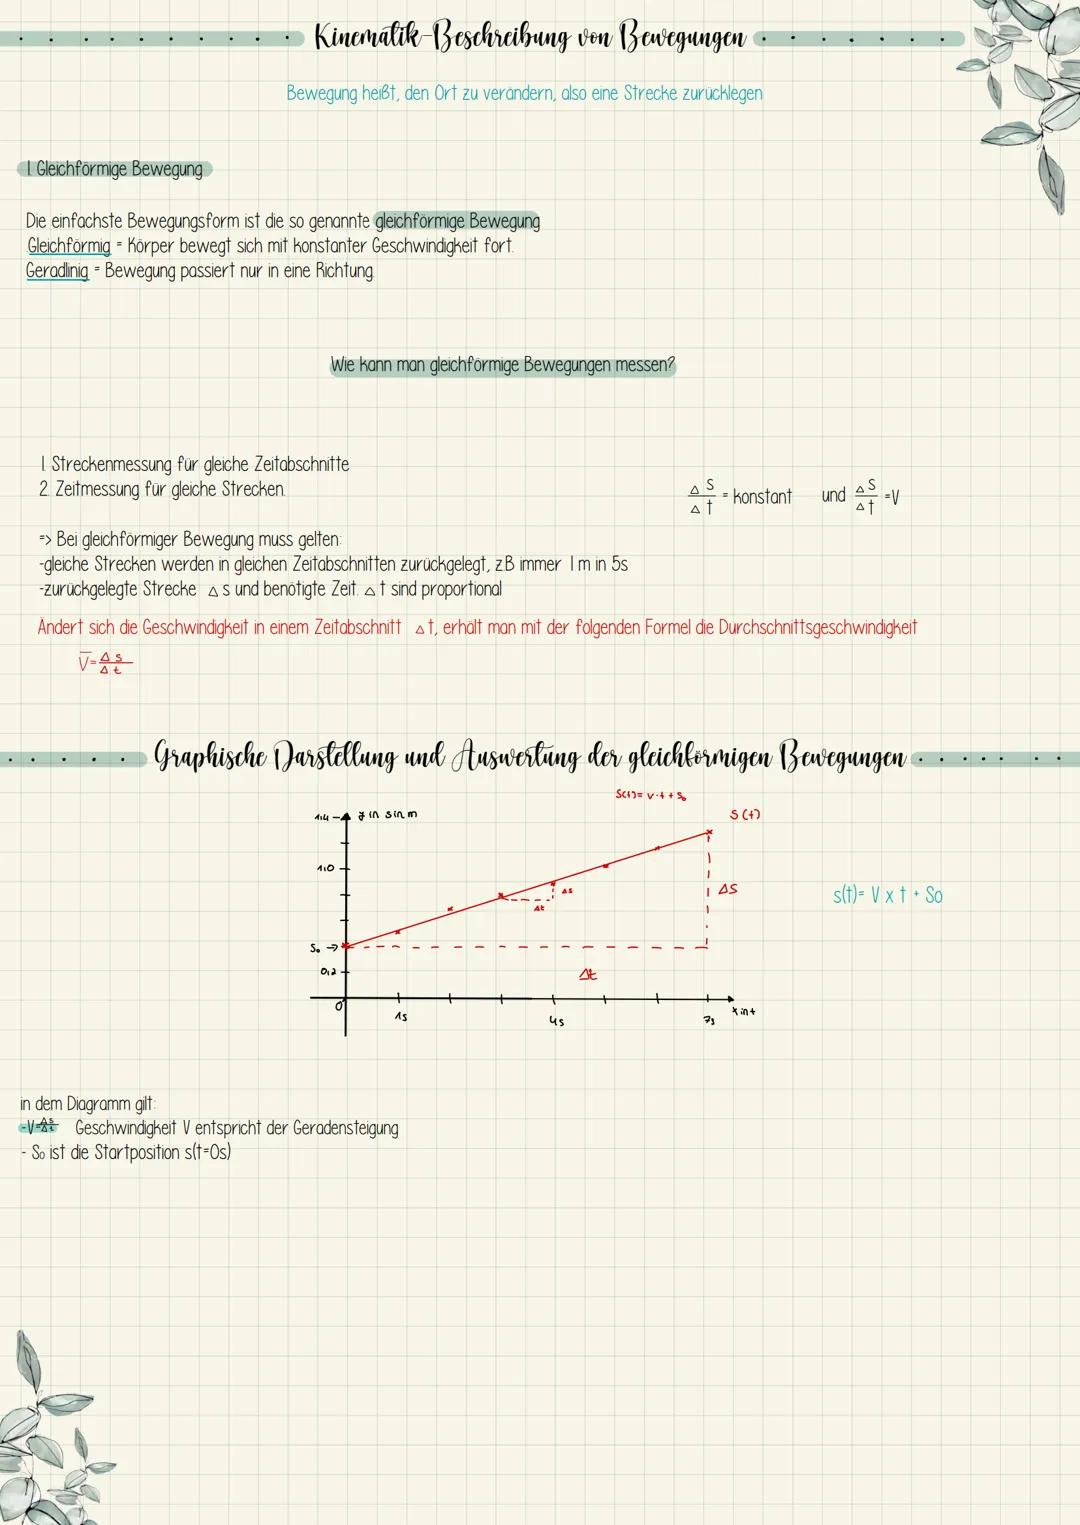 Kinematik-Beschreibung von Bewegungen
Bewegung heißt, den Ort zu verändern, also eine Strecke zurücklegen
1. Gleichförmige Bewegung
Die einfachste Bewegungsform ist die so genannte gleichförmige Bewegung
Gleichförmig = Körper bewegt sich mit konstanter Geschwindigkeit fort.
Geradlinig = Bewegung passiert nur in eine Richtung.
Wie kann man gleichförmige Bewegungen messen?
1. Streckenmessung für gleiche Zeitabschnitte
2. Zeitmessung für gleiche Strecken.
△S/△t = konstant und △S/△t =V
=> Bei gleichförmiger Bewegung muss gelten:
-gleiche Strecken werden in gleichen Zeitabschnitten zurückgelegt, z.B immer 1 m in 5s
-zurückgelegte Strecke △s und benötigte Zeit. △t sind proportional
Ändert sich die Geschwindigkeit in einem Zeitabschnitt △t, erhält man mit der folgenden Formel die Durchschnittsgeschwindigkeit
V̅=△s/△t
Graphische Darstellung und Auswertung der gleichförmigen Bewegungen
S(t)= v·t+S₀
1,4 y in s in m
S(t)
1,0
△s
△S
△t
s(t)= V x t + S₀
S₀ →
0,2
△t
0
1s
4s
7s
x in t
in dem Diagramm gilt:
-V=△s/△t Geschwindigkeit V entspricht der Geradensteigung
- S₀ ist die Startposition s(t=0s)